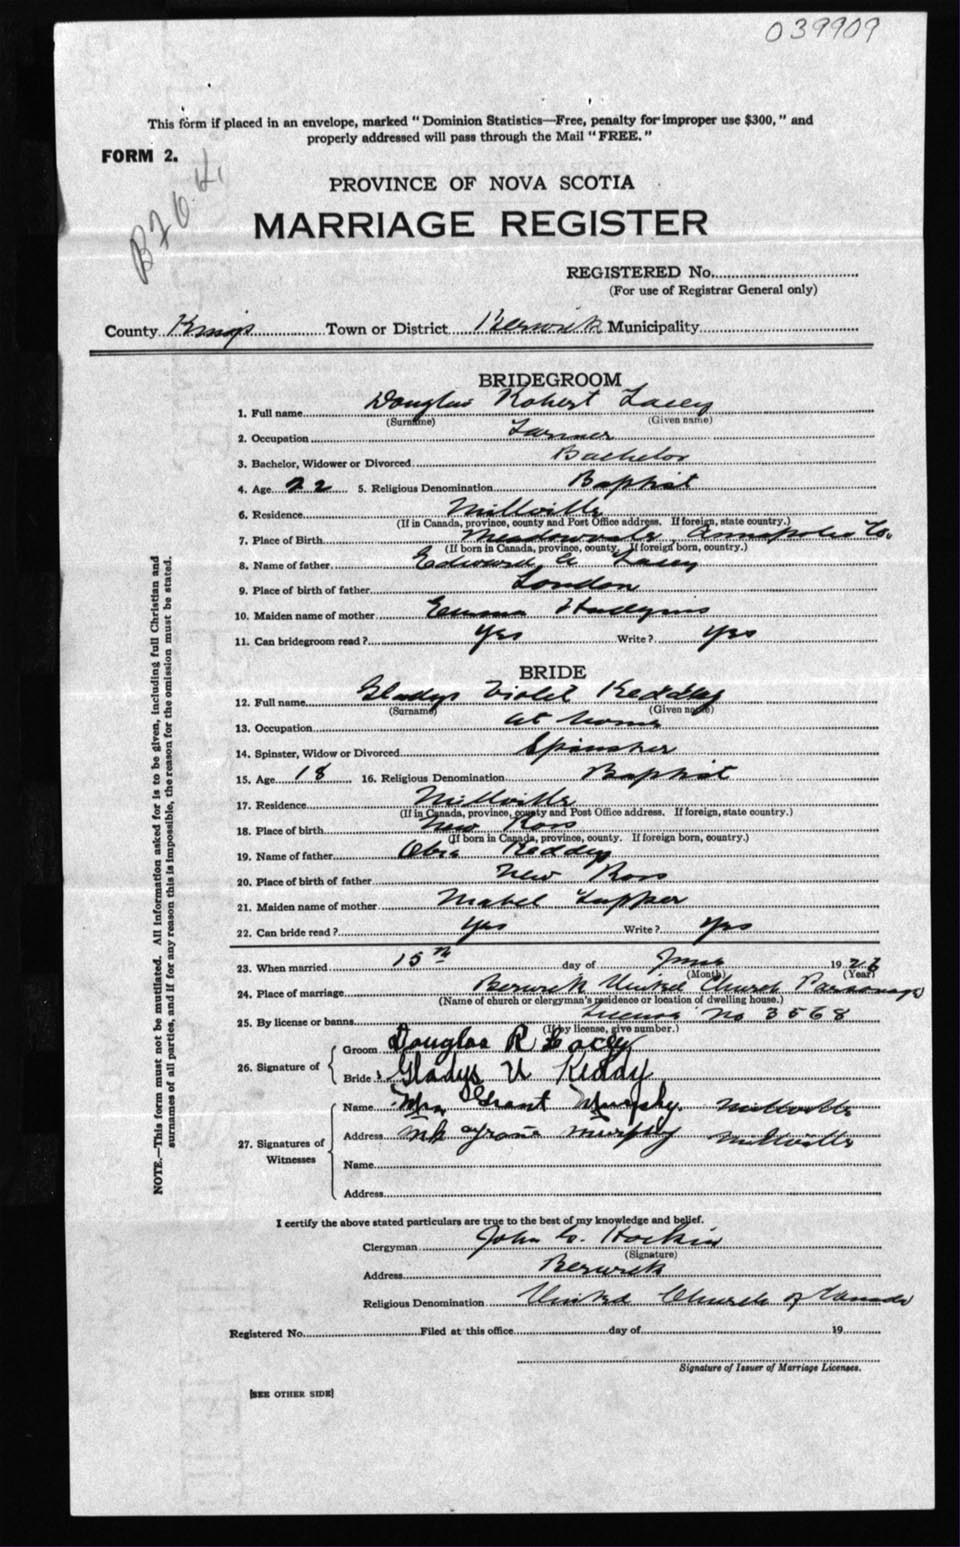 039909
This form if placed in an envelope, marked "Dominion Statistics—Free, penalty for improper use $300," and
properly addressed will pass through the Mail "FREE."
FORM 2.
PROVINCE OF NOVA SCOTIA
MARRIAGE REGISTER
REGISTERED No.
(For use of Registrar General only)
County Kings Town or District Berwick Municipality
BRIDEGROOM
1. Full name Douglas Robert Lacey
(Surname) (Given name)
2. Occupation Farmer
3. Bachelor, Widower or Divorced Bachelor
4. Age 22 5. Religious Denomination Baptist
6. Residence Millville
(If in Canada, province, county and Post Office address. If foreign, state country.)
7. Place of Birth Meadowvale Annapolis Co.
(If born in Canada, province, county. If foreign born, country.)
8. Name of father Edward A Lacey
9. Place of birth of father London
10. Maiden name of mother Emma Hudgins
11. Can bridegroom read? Yes Write? Yes
BRIDE
12. Full name Gladys Violet Keddy
(Surname) (Given name)
13. Occupation at home
14. Spinster, Widow or Divorced Spinster
15. Age 18 16. Religious Denomination Baptist
17. Residence Millville
(If in Canada, province, county and Post Office address. If foreign, state country.)
18. Place of birth New Ross
(If born in Canada, province, county. If foreign born, country.)
19. Name of father Keddy
20. Place of birth of father New Ross
21. Maiden name of mother Mabel Tupper
22. Can bride read? Yes Write? Yes
23. When married 15th day of June 1926
(Month) (Year)
24. Place of marriage Berwick United Church Parsonage
(Name of church or clergyman's residence or location of dwelling house.)
25. By license or banns License No 3568
(If by license, give number.)
26. Signature of
Groom Douglas R Lacey
Bride Gladys V Keddy
27. Signatures of Witnesses
Name Mrs Grant Murphy. Millville
Address Mr Grant Murphy Millville
Name
Address
I certify the above stated particulars are true to the best of my knowledge and belief.
Clergyman John C. Hockin
(Signature)
Address Berwick
Religious Denomination United Church of Canada
Registered No. Filed at this office day of 19
Signature of Issuer of Marriage Licenses.
[SEE OTHER SIDE]
NOTE.—This form must not be mutilated. All information asked for is to be given, including full Christian and
surnames of all parties, and if for any reason this is impossible, the reason for the omission must be stated.